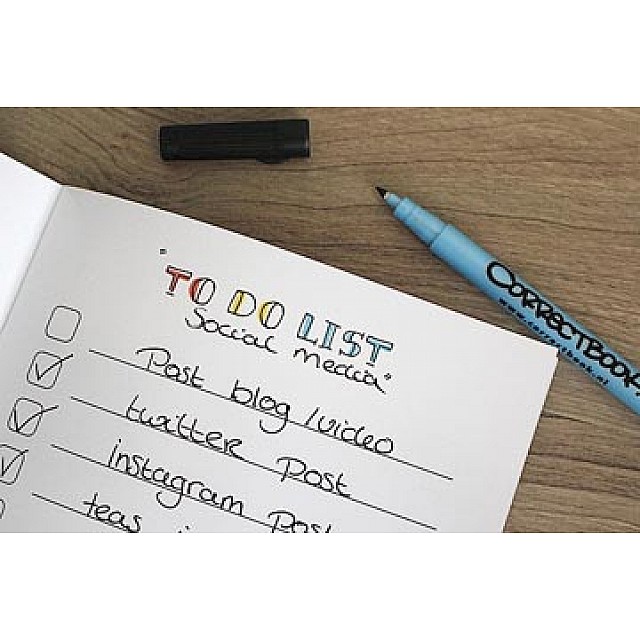 "TO DO LIST
Social media"
Post blog/video
twitter post
instagram Post
teas
CORRECTBOOK
www.correctbook.nl